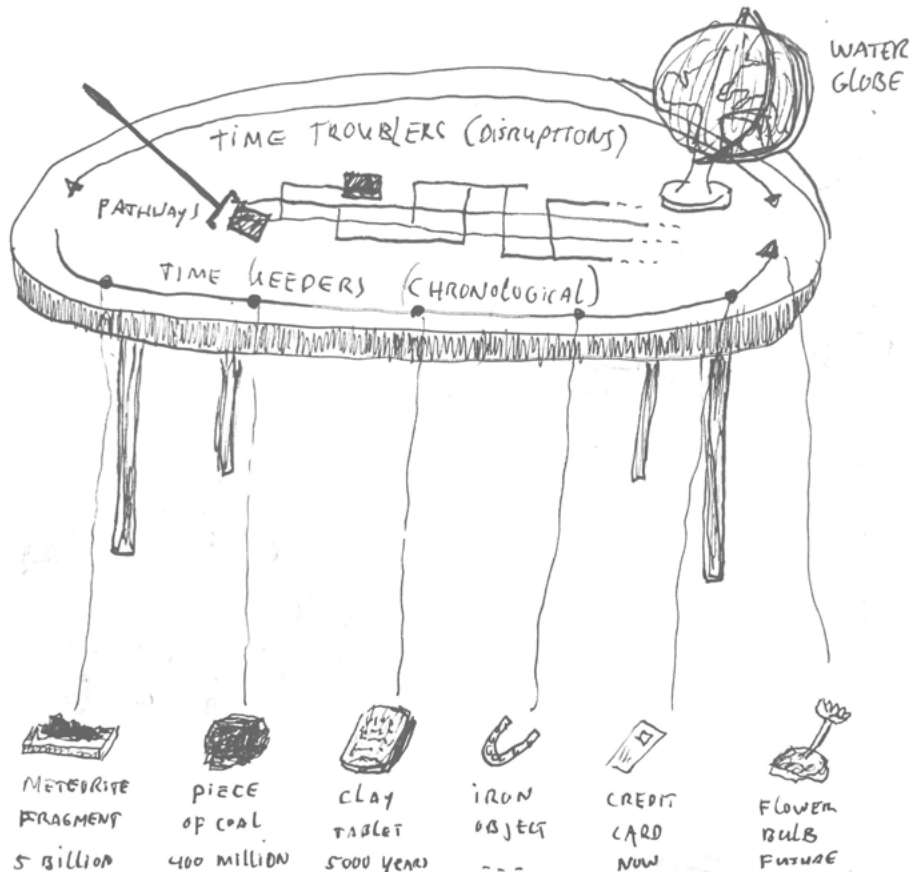 WATER
GLOBE
TIME TROUBLERS (DISRUPTIONS)
PATHWAYS
TIME KEEPERS (CHRONOLOGICAL)
METEORITE
FRAGMENT
5 BILLION
PIECE
OF COAL
400 MILLION
CLAY
TABLET
5000 YEARS
IRON
OBJECT
---
CREDIT
CARD
NOW
FLOWER
BULB
FUTURE